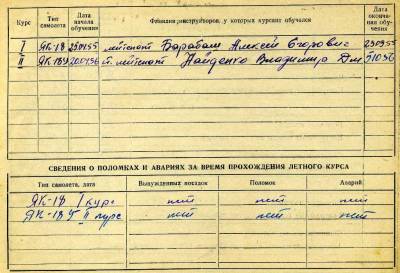 Курс Тип самолета Дата начала обучения Фамилии инструкторов, у которых курсант обучался Дата окончания обучения
I ЯК-18 25.04.55 лейтенант Барабаш Алексей Егорович 25.09.55
II ЯК-18У 20.04.56 ст. лейтенант Найденко Владимир Дм 5.10.56
СВЕДЕНИЯ О ПОЛОМКАХ И АВАРИЯХ ЗА ВРЕМЯ ПРОХОЖДЕНИЯ ЛЕТНОГО КУРСА
Тип самолета, дата Вынужденных посадок Поломок Аварий
ЯК-18 I курс нет нет нет
ЯК-18У II курс нет нет нет